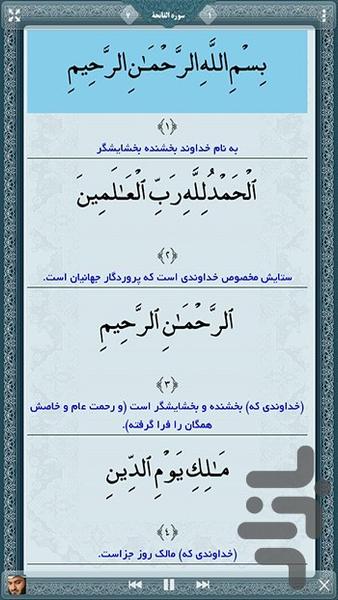 سورة الفاتحة
١
بِسْمِ اللَّهِ الرَّحْمَٰنِ الرَّحِيمِ
﴿١﴾
به نام خداوند بخشنده بخشایشگر
ٱلْحَمْدُ لِلَّهِ رَبِّ ٱلْعَٰلَمِينَ
﴿٢﴾
ستایش مخصوص خداوندی است که پروردگار جهانیان است.
ٱلرَّحْمَٰنِ ٱلرَّحِيمِ
﴿٣﴾
(خداوندی که) بخشنده و بخشایشگر است (و رحمت عام و خاصش
همگان را فرا گرفته).
مَٰلِكِ يَوْمِ ٱلدِّينِ
﴿٤﴾
(خداوندی که) مالک روز جزاست.
بازار